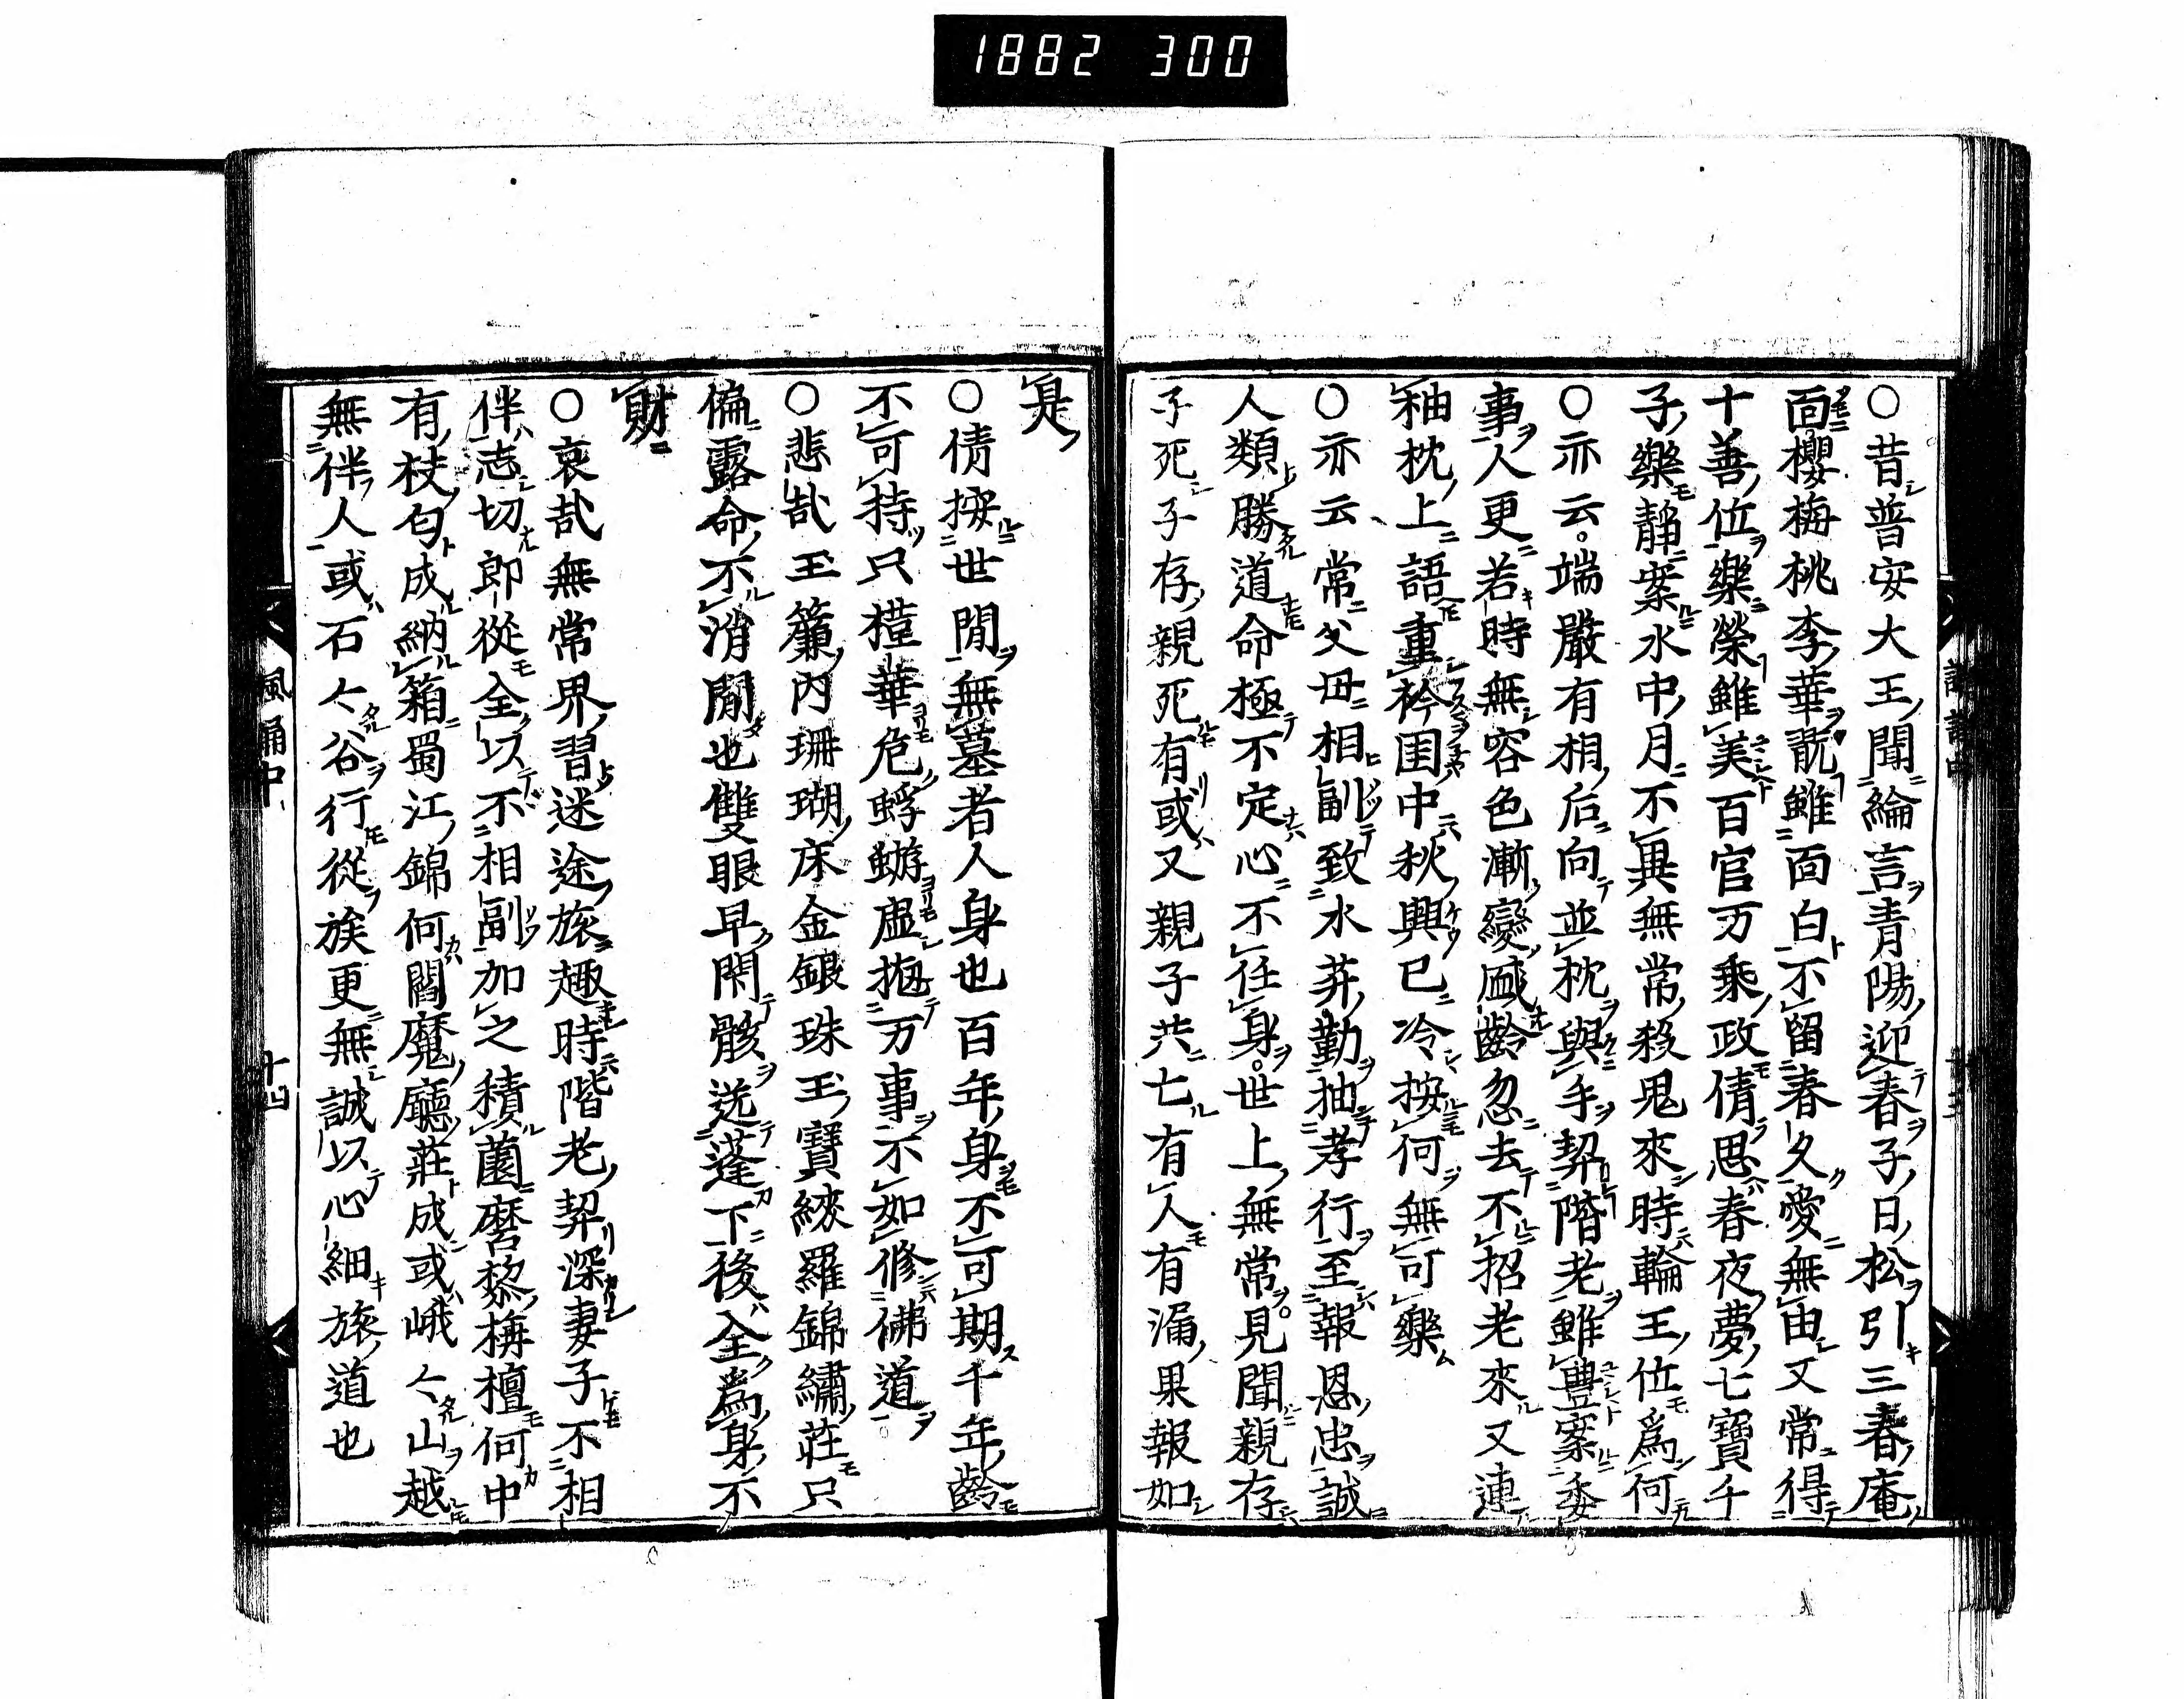 1882 300
○昔普安大王聞綸言青陽迎春子日松引三春庵
面櫻梅桃李華翫雖面白不留春久愛無由又常得
十善位樂榮雖美百官万乘政倩思春夜夢七寶千
子樂靜案水中月不異無常殺鬼來時輪王位爲何
○亦云端嚴有相后向並枕與手契階老雖豊案委
事人更若時無容色漸變盛齡忽去不招老來又連
袖枕上語重衾国中秋興已冷按何無可樂
○亦云常父母相副致水莽勤抽孝行至報恩忠誠
人類勝道命極不定心不任身世上無常見聞親存
子死子存親死有或又親子共亡有人有漏果報如
是
○倩按世間無墓者人身也百年身不可期千年齡
不可持只槿華危蜉蝣虚抛万事不如修佛道
○悲哉玉簾內珊瑚床金銀珠玉寶綾羅錦繡莊只
偏露命不消間也雙眼早閑骸送蓬下後全爲身不
財
○哀哉無常界習迷途旅趣時階老契深妻子不相
伴志切郎從全以不相副加之積薗麿黎栴檀何中
有杖匂成納箱蜀江錦何閻魔廳莊成或峨々山越
無伴人或石々谷行從族更無誠以心細旅道也
諷誦中
十四